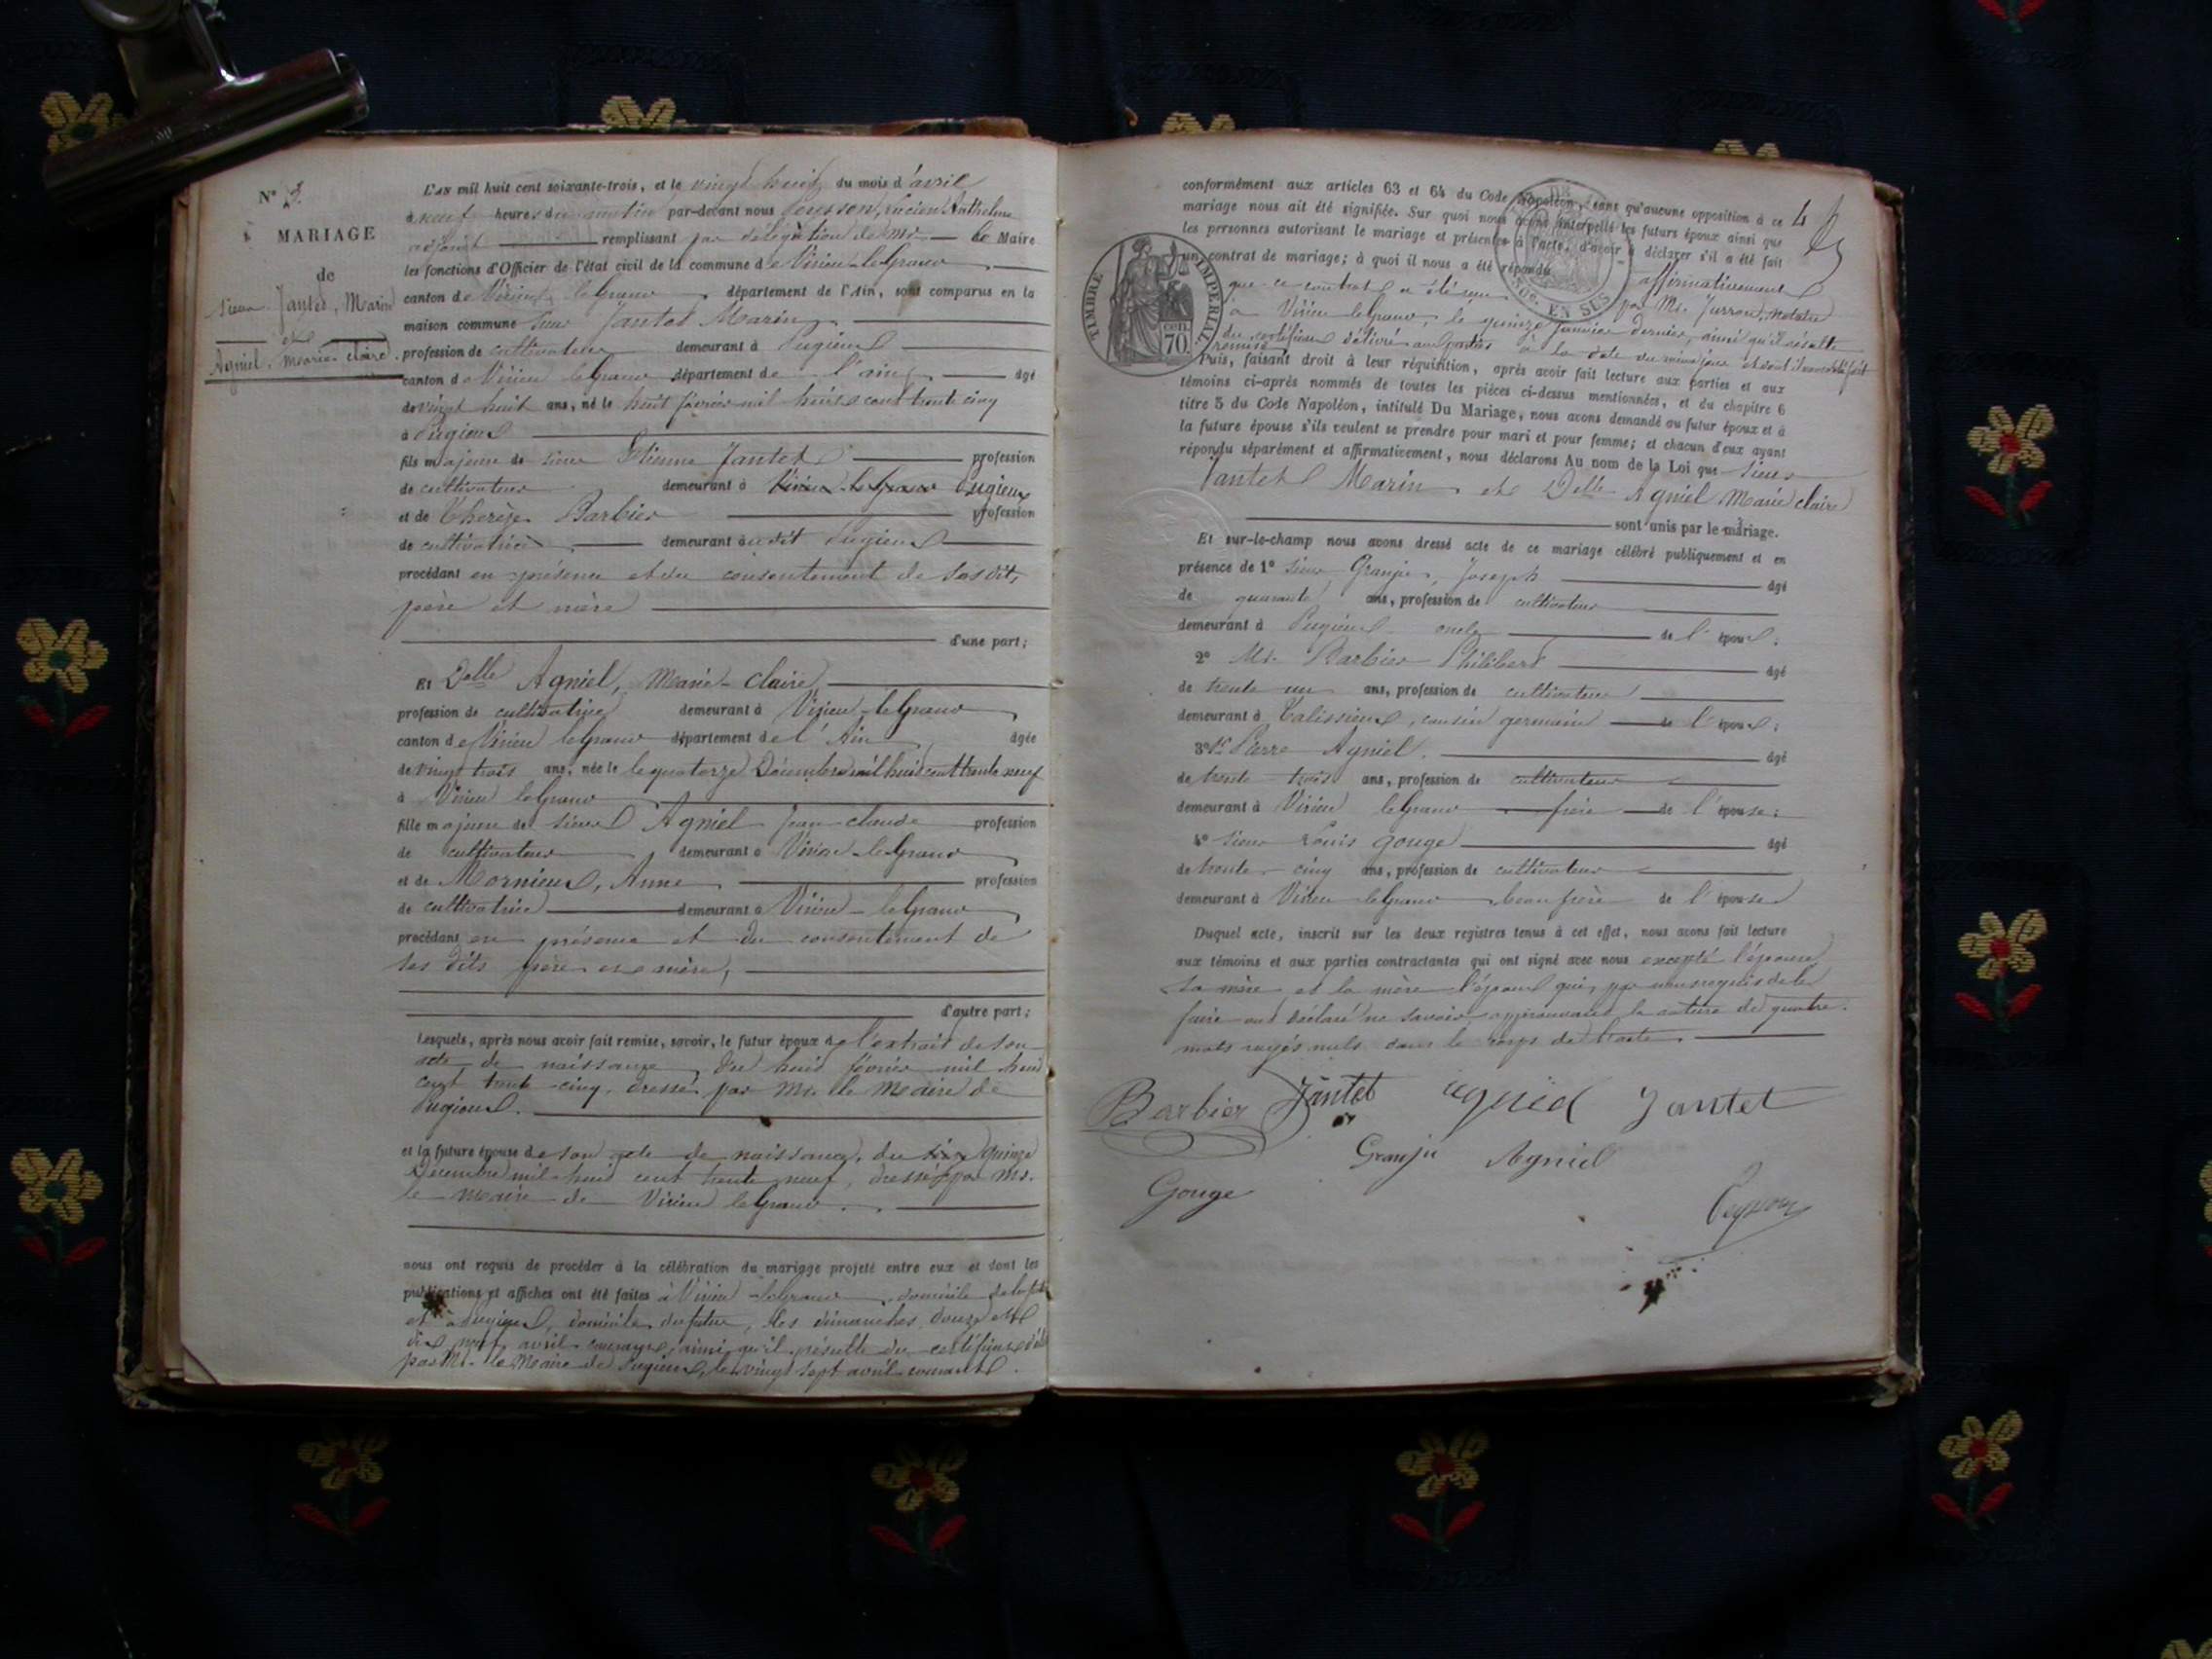 N° 3.
MARIAGE
de
Sieur Jantet, Marin
et
Agniel, Marie-claire.
L'an mil huit cent soixante-trois, et le vingt huit du mois d'avril
à neuf heures du matin par-devant nous Peysson, Lucien Anthelme
adjoint remplissant par délégation de Mr. le Maire
les fonctions d'Officier de l'état civil de la commune de Virieu-le-Grand
canton de Virieu le Grand, département de l'Ain, sont comparus en la
maison commune sieur Jantet Marin
profession de cultivateur demeurant à Pugieu
canton de Virieu le Grand département de l'ain, âgé
de vingt huit ans, né le huit février mil huit cent trente cinq
à Pugieu
fils majeur de sieur Etienne Jantet profession
de cultivateur demeurant à Virieu-le-Grand Pugieux
et de Thérèze Barbier profession
de cultivatrice demeurant audit Pugieu
procédant en présence et du consentement de ses dits
père et mère
d'une part;
Et Delle Agniel, Marie-Claire
profession de cultivatrice demeurant à Virieu-le-Grand
canton de Virieu le Grand département de l'Ain âgée
de vingt trois ans, née le le quatorze Décembre mil huit cent trente neuf
à Virieu le Grand
fille majeure de sieur Agniel Jean-claude profession
de cultivateur demeurant à Virieu-le-Grand
et de Mornieux, Anne profession
de cultivatrice demeurant à Virieu-le-Grand
procédant en présence et du consentement de
ses dits père et mère,
d'autre part;
Lesquels, après nous avoir fait remise, savoir, le futur époux de l'extrait de son
acte de naissance, du huit février mil huit
cent trente-cinq, dressé par Mr. le Maire de
Pugieu.
et la future épouse de son acte de naissance, du six quinze
Décembre mil huit cent trente neuf, dressé par Mr.
le maire de Virieu le Grand.
nous ont requis de procéder à la célébration du mariage projeté entre eux et dont les
publications et affiches ont été faites à Virieu-le-Grand, domicile de la future
et à Pugieu, domicile du futur, les dimanches douze et
dix neuf avril courant, ainsi qu'il résulte du certificat
par Mr. le Maire de Pugieu, le vingt sept avril courant.
4
conformément aux articles 63 et 64 du Code Napoléon, sans qu'aucune opposition à ce
mariage nous ait été signifiée. Sur quoi nous avons interpellé les futurs époux ainsi que
les personnes autorisant le mariage et présentes à l'acte, d'avoir à déclarer s'il a été fait
un contrat de mariage; à quoi il nous a été répondu affirmativement
que ce contrat a été reçu par Mr. Jurron, notaire
à Virieu le Grand, le quinze janvier dernier, ainsi qu'il résulte
du certificat délivré aux parties à la date du même jour et dont il nous a été fait
remise
Puis, faisant droit à leur réquisition, après avoir fait lecture aux parties et aux
témoins ci-après nommés de toutes les pièces ci-dessus mentionnées, et du chapitre 6
titre 5 du Code Napoléon, intitulé Du Mariage, nous avons demandé au futur époux et à
la future épouse s'ils veulent se prendre pour mari et pour femme; et chacun d'eux ayant
répondu séparément et affirmativement, nous déclarons Au nom de la Loi que sieur
Jantet Marin et Delle Agniel Marie claire
sont unis par le mariage.
Et sur-le-champ nous avons dressé acte de ce mariage célébré publiquement et en
présence de 1° sieur Granju, Joseph âgé
de quarante ans, profession de cultivateur
demeurant à Pugieu oncle de l'époux;
2° Mr. Barbier Philibert âgé
de trente un ans, profession de cultivateur
demeurant à Talissieu, cousin germain de l'époux;
3° Sr Pierre Agniel. âgé
de trente-trois ans, profession de cultivateur
demeurant à Virieu le Grand frère de l'épouse;
4° sieur Louis Gouge âgé
de trente-cinq ans, profession de cultivateur
demeurant à Virieu le Grand beau frère de l'épouse
Duquel acte, inscrit sur les deux registres tenus à cet effet, nous avons fait lecture
aux témoins et aux parties contractantes qui ont signé avec nous excepté l'épouse
sa mère et la mère l'époux qui, par nous requis de le
faire ont déclaré ne savoir. approuvant la rature de quatre
mots rayés nuls dans le corps de l'acte.
Barbier Jantet agniel Jantet
Granju Agniel
Gouge
Peysson
TIMBRE IMPERIAL
70 cen.
DE
EN SUS